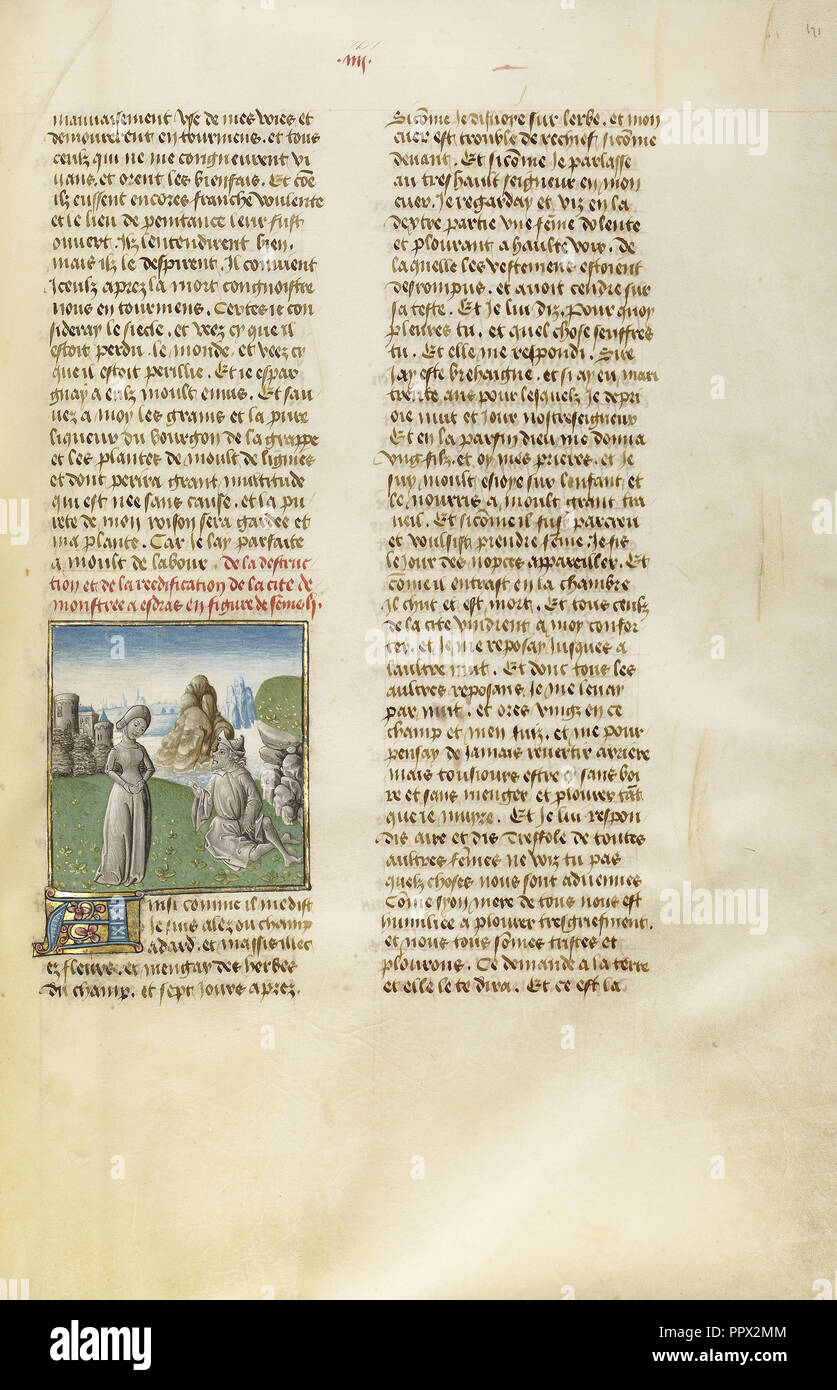 .iiij.
171
mauuaisement vse de mes voies et
demourerent en tourmens. et tous
ceulz qui ne me congneurent vi
uans. et orent les bienfais. Et cõe
ilz eussent encores franche voulente
et le lieu de penitance leur fust
ouuert. ilz lentendirent bien.
mais ilz le despirent. Il conuient
iceulz aprez la mort congnoistre
nous en tourmens. Certes ie con
sideray le siecle. et veez cy que il
estoit perdu. le monde. et veez cy
que il estoit perillie. Et ie espar
gnay a eulz moult enuis. Et sau
uez a moy les grains et la pure
liqueur du bourgon de la grappe
et les plantes de moult de lignies
et dont perira grant multitude
qui est nee sans cause. et la pu
rete de mon roisin sera gardee et
ma plante. Car ie lay parfaite
a moult de labour. De la destruc
tion et de la reedification de la cite de
monstree a esdras en figure de feme.
Ainsi comme il me dist
Je suis alez ou champ
adard. et massis illec
ez fleurs. et mengay des herbes
du champ. et sept iours aprez.
Si cõme ie disnoye sur lerbe. et mon
cuer est trouble de rechief si cõme
deuant. Et si cõme ie parlasse
au tres hault seigneur en mon
cuer. Je regarday et viz en la
dextre partie vne fẽme dolente
et plourant a haulte voix. de
laquelle les vestemens estoient
desrompus. et auoit cendre sur
sa teste. Et ie lui diz. Pour quoy
pleures tu. et quel chose seuffres
tu. Et elle me respondi. Sire
Jay este brehaigne. et si ay eu mari
trente ans pour lesquelz ie depri
oie nuit et iour nostreseigneur
Et en la parfin dieu me donna
vng filz. et oy mes prieres. et ie
fuy moult esioye sur lenfant et
le nourris a moult grant tra
ueil. Et si cõme il fust parcreu
et voulsist prendre feme. Je fis
le iour des nopces appareiller. Et
cõme il entrast en la chambre
il chut et est mort. Et tous ceulz
de la cite vindrent a moy confor
ter. et ie me reposay iusques a
laultre nuit. Et donc tous les
aultres reposans ie me leuay
par nuit. et ores vingz en ce
champ et men fuiz. et me pour
pensay de iamais reuertir arriere
mais tousiours estre sans boi
re et sans menger et plourer tãt
que ie muyre. Et ie lui respon
dis aire et dis Tresfole de toutes
aultres fẽmes ne voiz tu pas
quelz choses nous sont aduenues
Cõme syon mere de tous nous est
humiliee a plourer tresgriefment.
et nous tous sõmes tristes et
plourons. Ce demande a la terre
et elle le te dira. Et ce est la
alamy
Image ID: PPX2MM
www.alamy.com